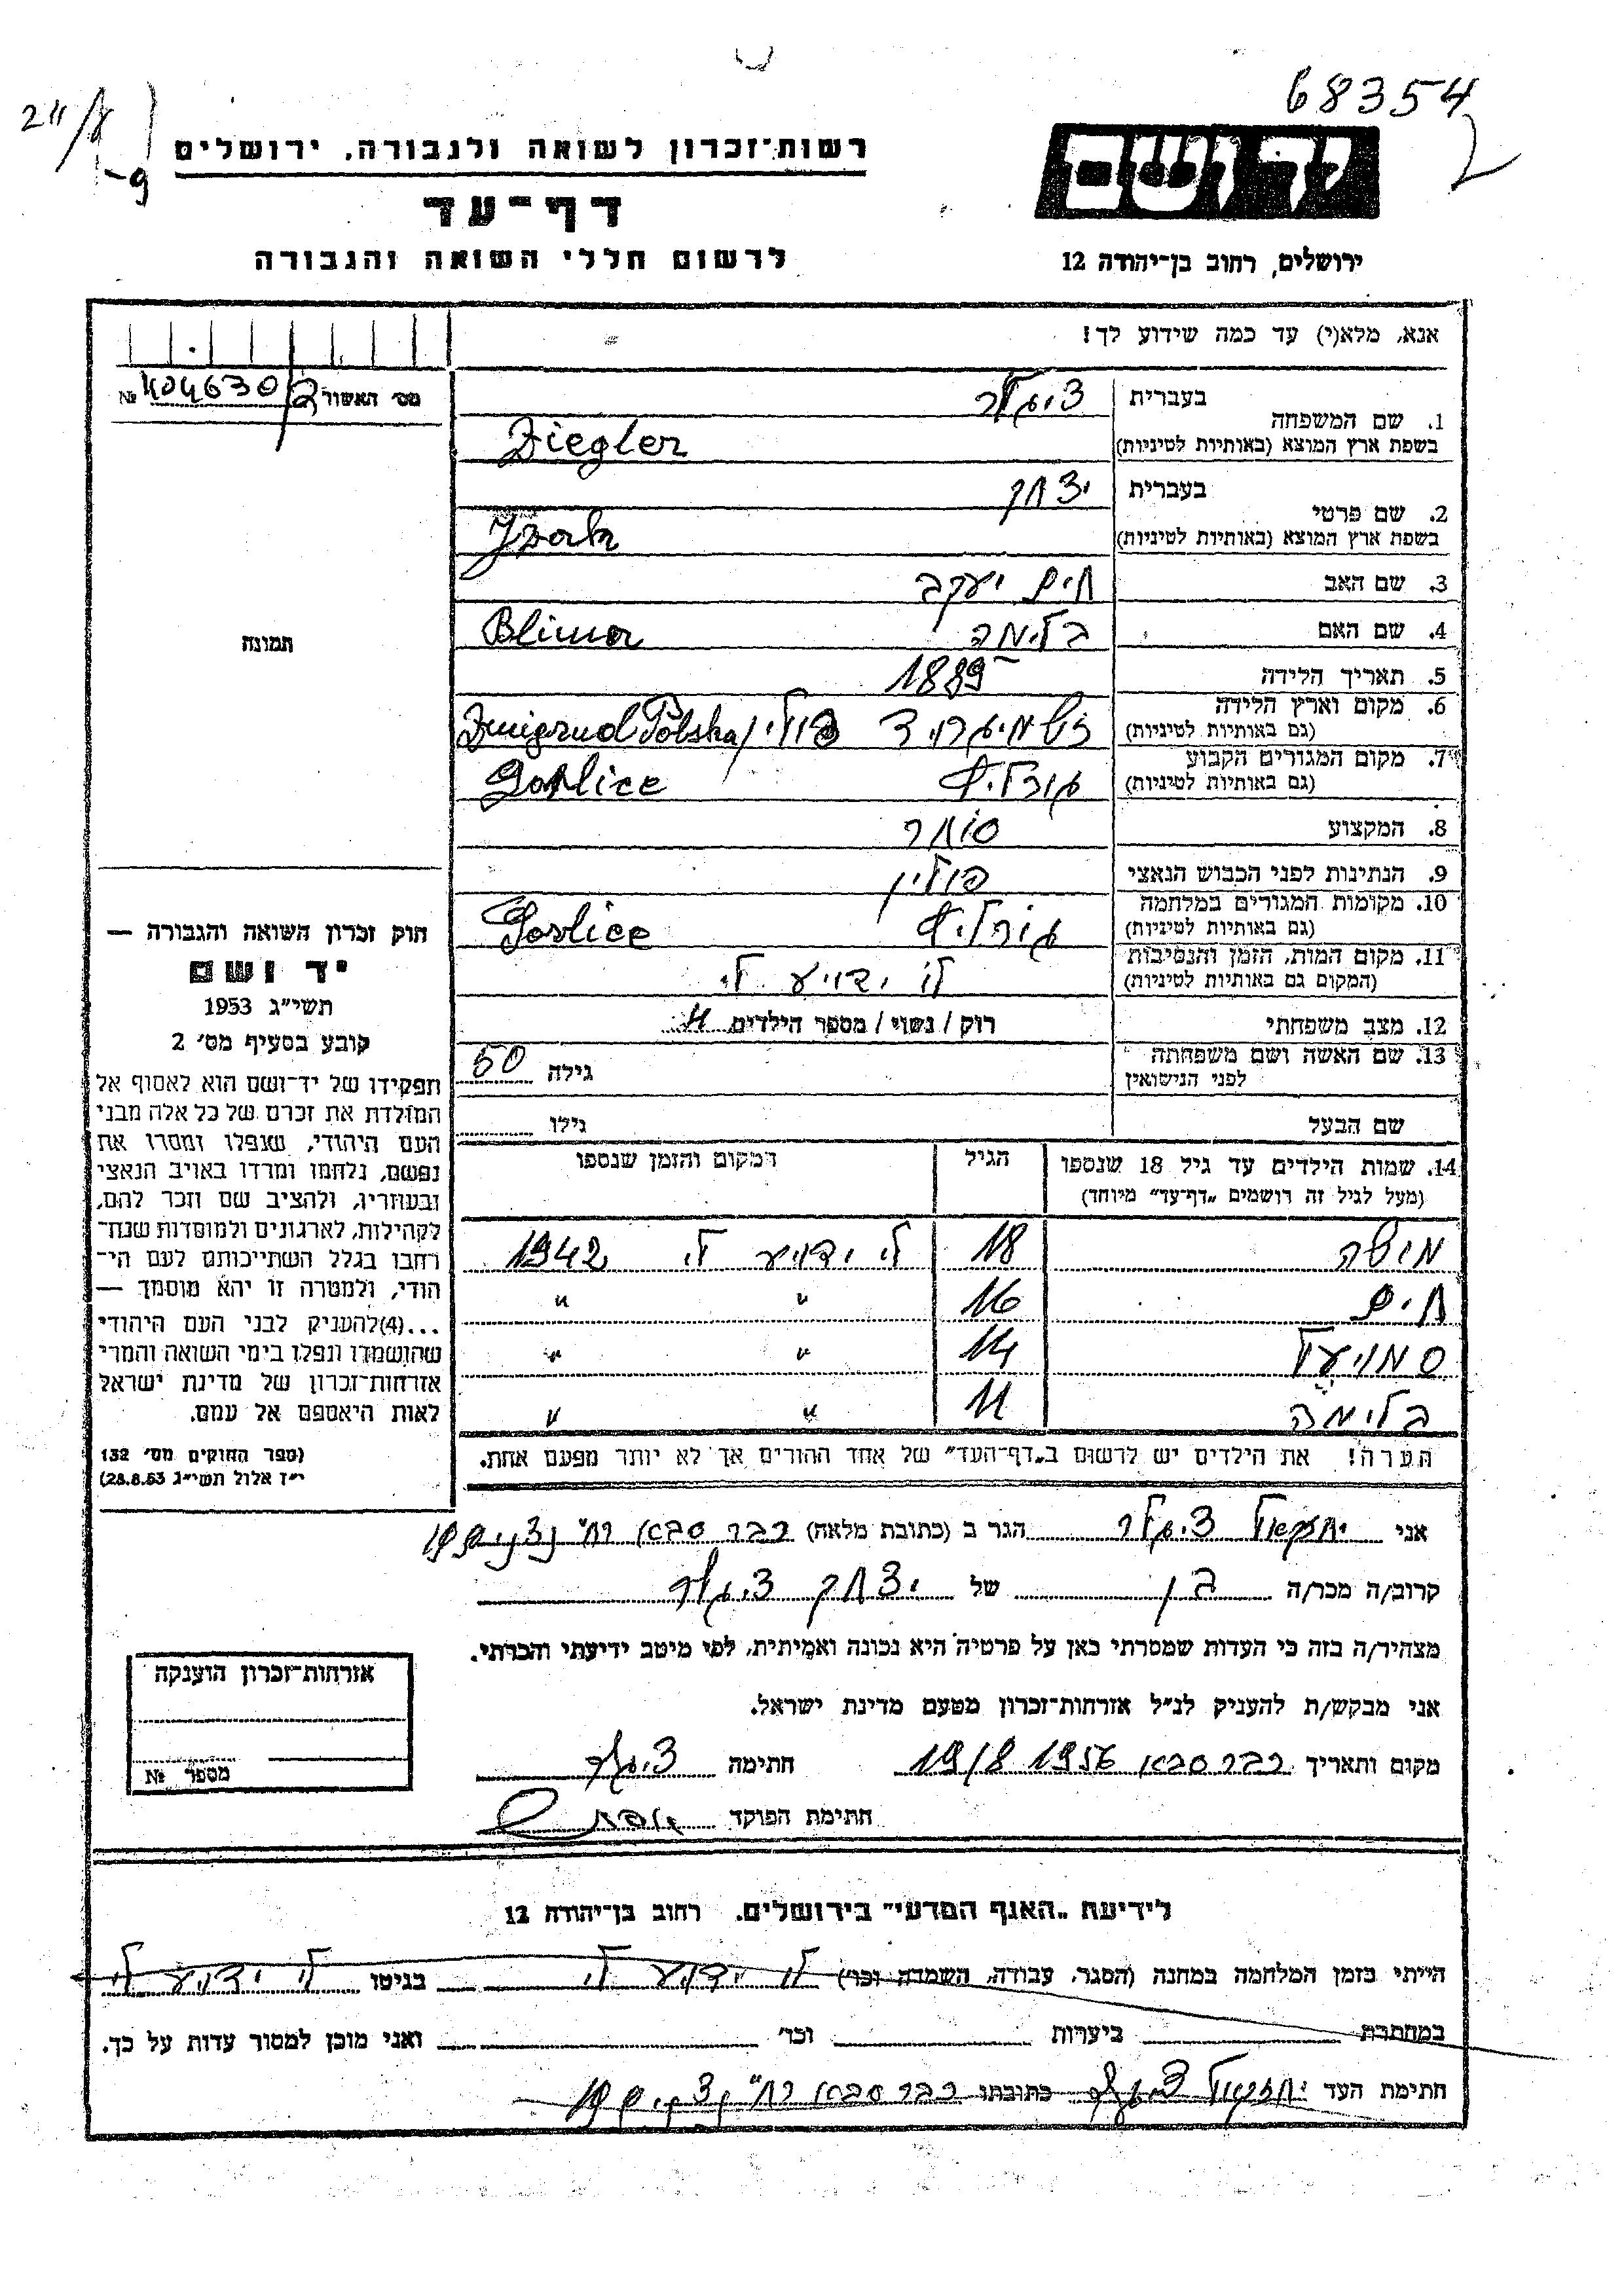 68354
רשות־זכרון לשואה ולגבורה, ירושלים
דף־עד
לרשום חללי השואה והגבורה
יד ושם
ירושלים, רחוב בן־יהודה 12
אנא, מלא(י) עד כמה שידוע לך!
מס׳ האשור 404630/2 №
1. שם המשפחה
בעברית ציגלר
בשפת ארץ המוצא (באותיות לטיניות) Ziegler
2. שם פרטי
בעברית יצחק
בשפת ארץ המוצא (באותיות לטיניות) Izak
3. שם האב חיים יעקב
4. שם האם בלימה Blima
5. תאריך הלידה 1889
6. מקום וארץ הלידה
(גם באותיות לטיניות) פולין Zmigrud Polska
7. מקום המגורים הקבוע
(גם באותיות לטיניות) גורליץ Gorlice
8. המקצוע סוחר
9. הנתינות לפני הכבוש הנאצי פולין
10. מקומות המגורים במלחמה
(גם באותיות לטיניות) גורליץ Gorlice
11. מקום המות, הזמן והנסיבות
(המקום גם באותיות לטיניות) לו ידוע לי
12. מצב משפחתי רוק / נשוי / מספר הילדים 4
13. שם האשה ושם משפחתה
לפני הנישואין גילה 50
שם הבעל גילו
14. שמות הילדים עד גיל 18 שנספו
(מעל לגיל זה רושמים „דף־עד״ מיוחד)
הגיל
המקום והזמן שנספו
משה 18 לו ידוע לי 1942
חיים 16 " "
סמועל 14 " "
בלימה 11 " "
הערה! את הילדים יש לרשום ב„דף־העד״ של אחד ההורים אך לא יותר מפעם אחת.
תמונה
חוק זכרון השואה והגבורה —
יד ושם
תשי״ג 1953
קובע בסעיף מס׳ 2
תפקידו של יד־ושם הוא לאסוף אל
המולדת את זכרם של כל אלה מבני
העם היהודי, שנפלו ומסרו את
נפשם, נלחמו ומרדו באויב הנאצי
ובעוזריו, ולהציב שם וזכר להם,
לקהילות, לארגונים ולמוסדות שנח־
רחבו בגלל השתייכותם לעם הי־
הודי, ולמטרה זו יהא מוסמך —
...(4)להעניק לבני העם היהודי
שהושמדו ונפלו בימי השואה והמרי
אזרחות־זכרון של מדינת ישראל
לאות היאספם אל עמם.
(ספר החוקים מס׳ 132
י״ז אלול תשי״ג 28.8.53)
אני יחזקאל ציגלר הגר ב (כתובת מלאה) כפר סבא רח״
קרוב/ה מכר/ה בן של יצחק ציגלר
מצהיר/ה בזה כי העדות שמסרתי כאן על פרטיה היא נכונה ואמיתית, לפי מיטב ידיעתי והכרתי.
אני מבקש/ת להעניק לנ״ל אזרחות־זכרון מטעם מדינת ישראל.
מקום ותאריך כפר סבא 19/8 1956 חתימה ציגלר
חתימת הפוקד
אזרחות־זכרון הוענקה
מספר №
לידיעת „האגף המדעי״ בירושלים. רחוב בן־יהודה 12
הייתי בזמן המלחמה במחנה (הסגר, עבודה, השמדה וכר׳) לו ידוע לי בגיטו לו ידוע לי
במחתרת ביערות וכר׳ ואני מוכן למסור עדות על כך.
חתימת העד יחזקאל ציגלר כתובתו כפר סבא רח״